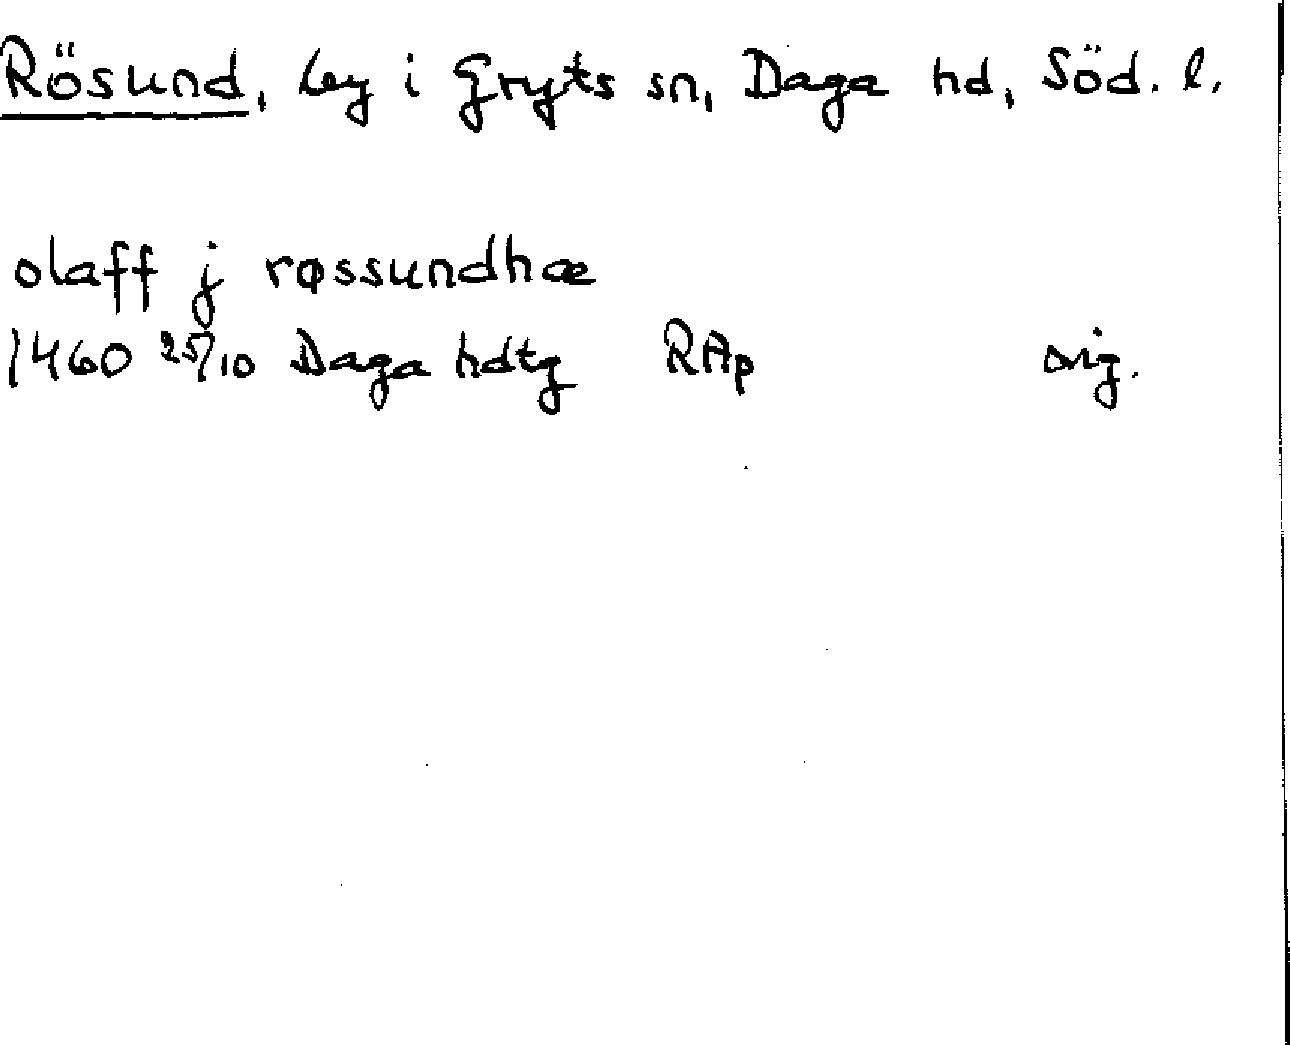 Rösund, leg i Gryts sn, Daga hd, Söd. l.
olaff j røssundhæ
1460 25/10 Daga hdtg RAp orig.